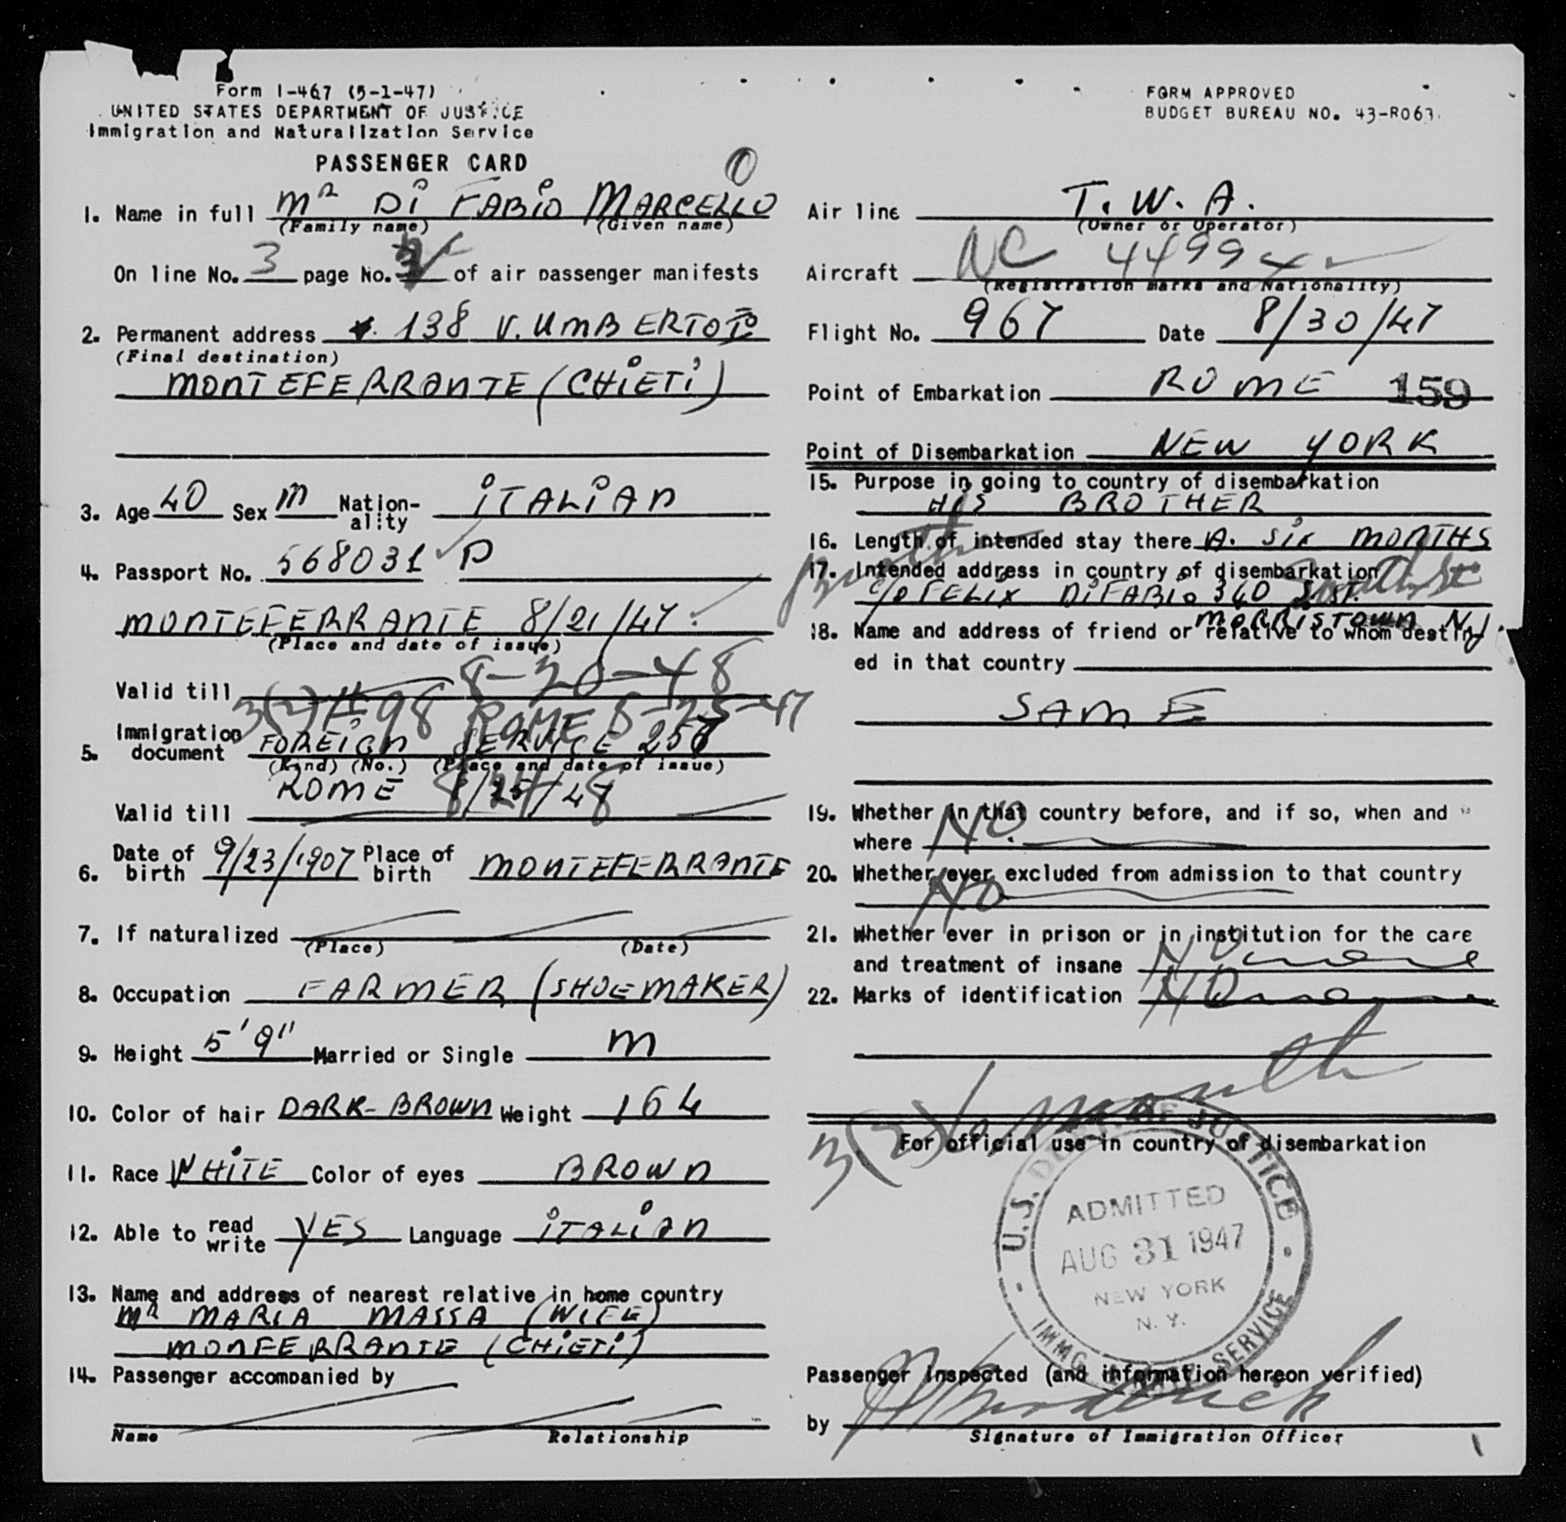 Form I-467 (5-1-47)
UNITED STATES DEPARTMENT OF JUSTICE
Immigration and Naturalization Service
PASSENGER CARD
FORM APPROVED
BUDGET BUREAU NO. 43-R063.
1. Name in full Mr Di FABiO MARCELLO
(Family name) (Given name)
On line No. 3 page No. 3 of air passenger manifests
2. Permanent address 138 V. UMBERTO I°
(Final destination)
MONTEFERRANTE (CHiETi)
3. Age 40 Sex M Nation-ality iTALiAN
4. Passport No. 568031 P
MONTEFERRANTE 8/21/47
(Place and date of issue)
Valid till 8-20-48
3(2) 98 ROME 8-25-47
5. Immigration document FOREiGN SERVICE 257
(Kind) (No.) (Place and date of issue)
ROME
Valid till
6. Date of birth 9/23/1907 Place of birth MONTEFERRANTE
7. If naturalized
(Place) (Date)
8. Occupation FARMER (SHOEMAKER)
9. Height 5'9" Married or Single M
10. Color of hair DARK-BROWN Weight 164
11. Race WHiTE Color of eyes BROWN
12. Able to read write YES Language iTALiAN
13. Name and address of nearest relative in home country
MR MARIA MASSA (WIFE)
MONFERRANTE (CHiETi)
14. Passenger accompanied by
Name Relationship
Air line T.W.A.
(Owner or Operator)
Aircraft NC 44994
(Registration marks and Nationality)
Flight No. 967 Date 8/30/47
Point of Embarkation ROME 159
Point of Disembarkation NEW YORK
15. Purpose in going to country of disembarkation
HIS BROTHER
16. Length of intended stay there A. Six MONTHS
17. Intended address in country of disembarkation
c/o FELiX DiFABiO 340 South St.
MORRISTOWN NJ.
18. Name and address of friend or relative to whom destined in that country
SAME
19. Whether in that country before, and if so, when and
where NO.
20. Whether ever excluded from admission to that country
NO
21. Whether ever in prison or in institution for the care
and treatment of insane NO
22. Marks of identification NO
3(2) 6 month
For official use in country of disembarkation
U.S. DEPT. OF JUSTICE
ADMITTED
AUG 31 1947
NEW YORK
N.Y.
IMMG. & NATZ. SERVICE
Passenger inspected (and information hereon verified)
by
Signature of Immigration Officer